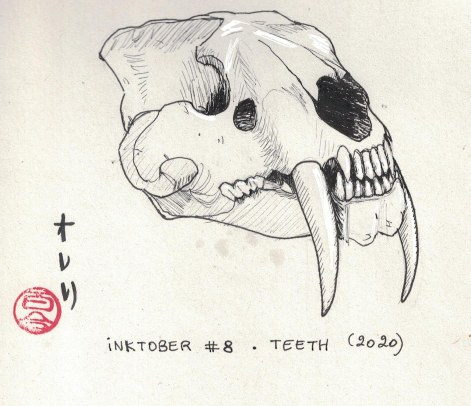 オレリ
iNKTOBER #8 . TEETH (2020)